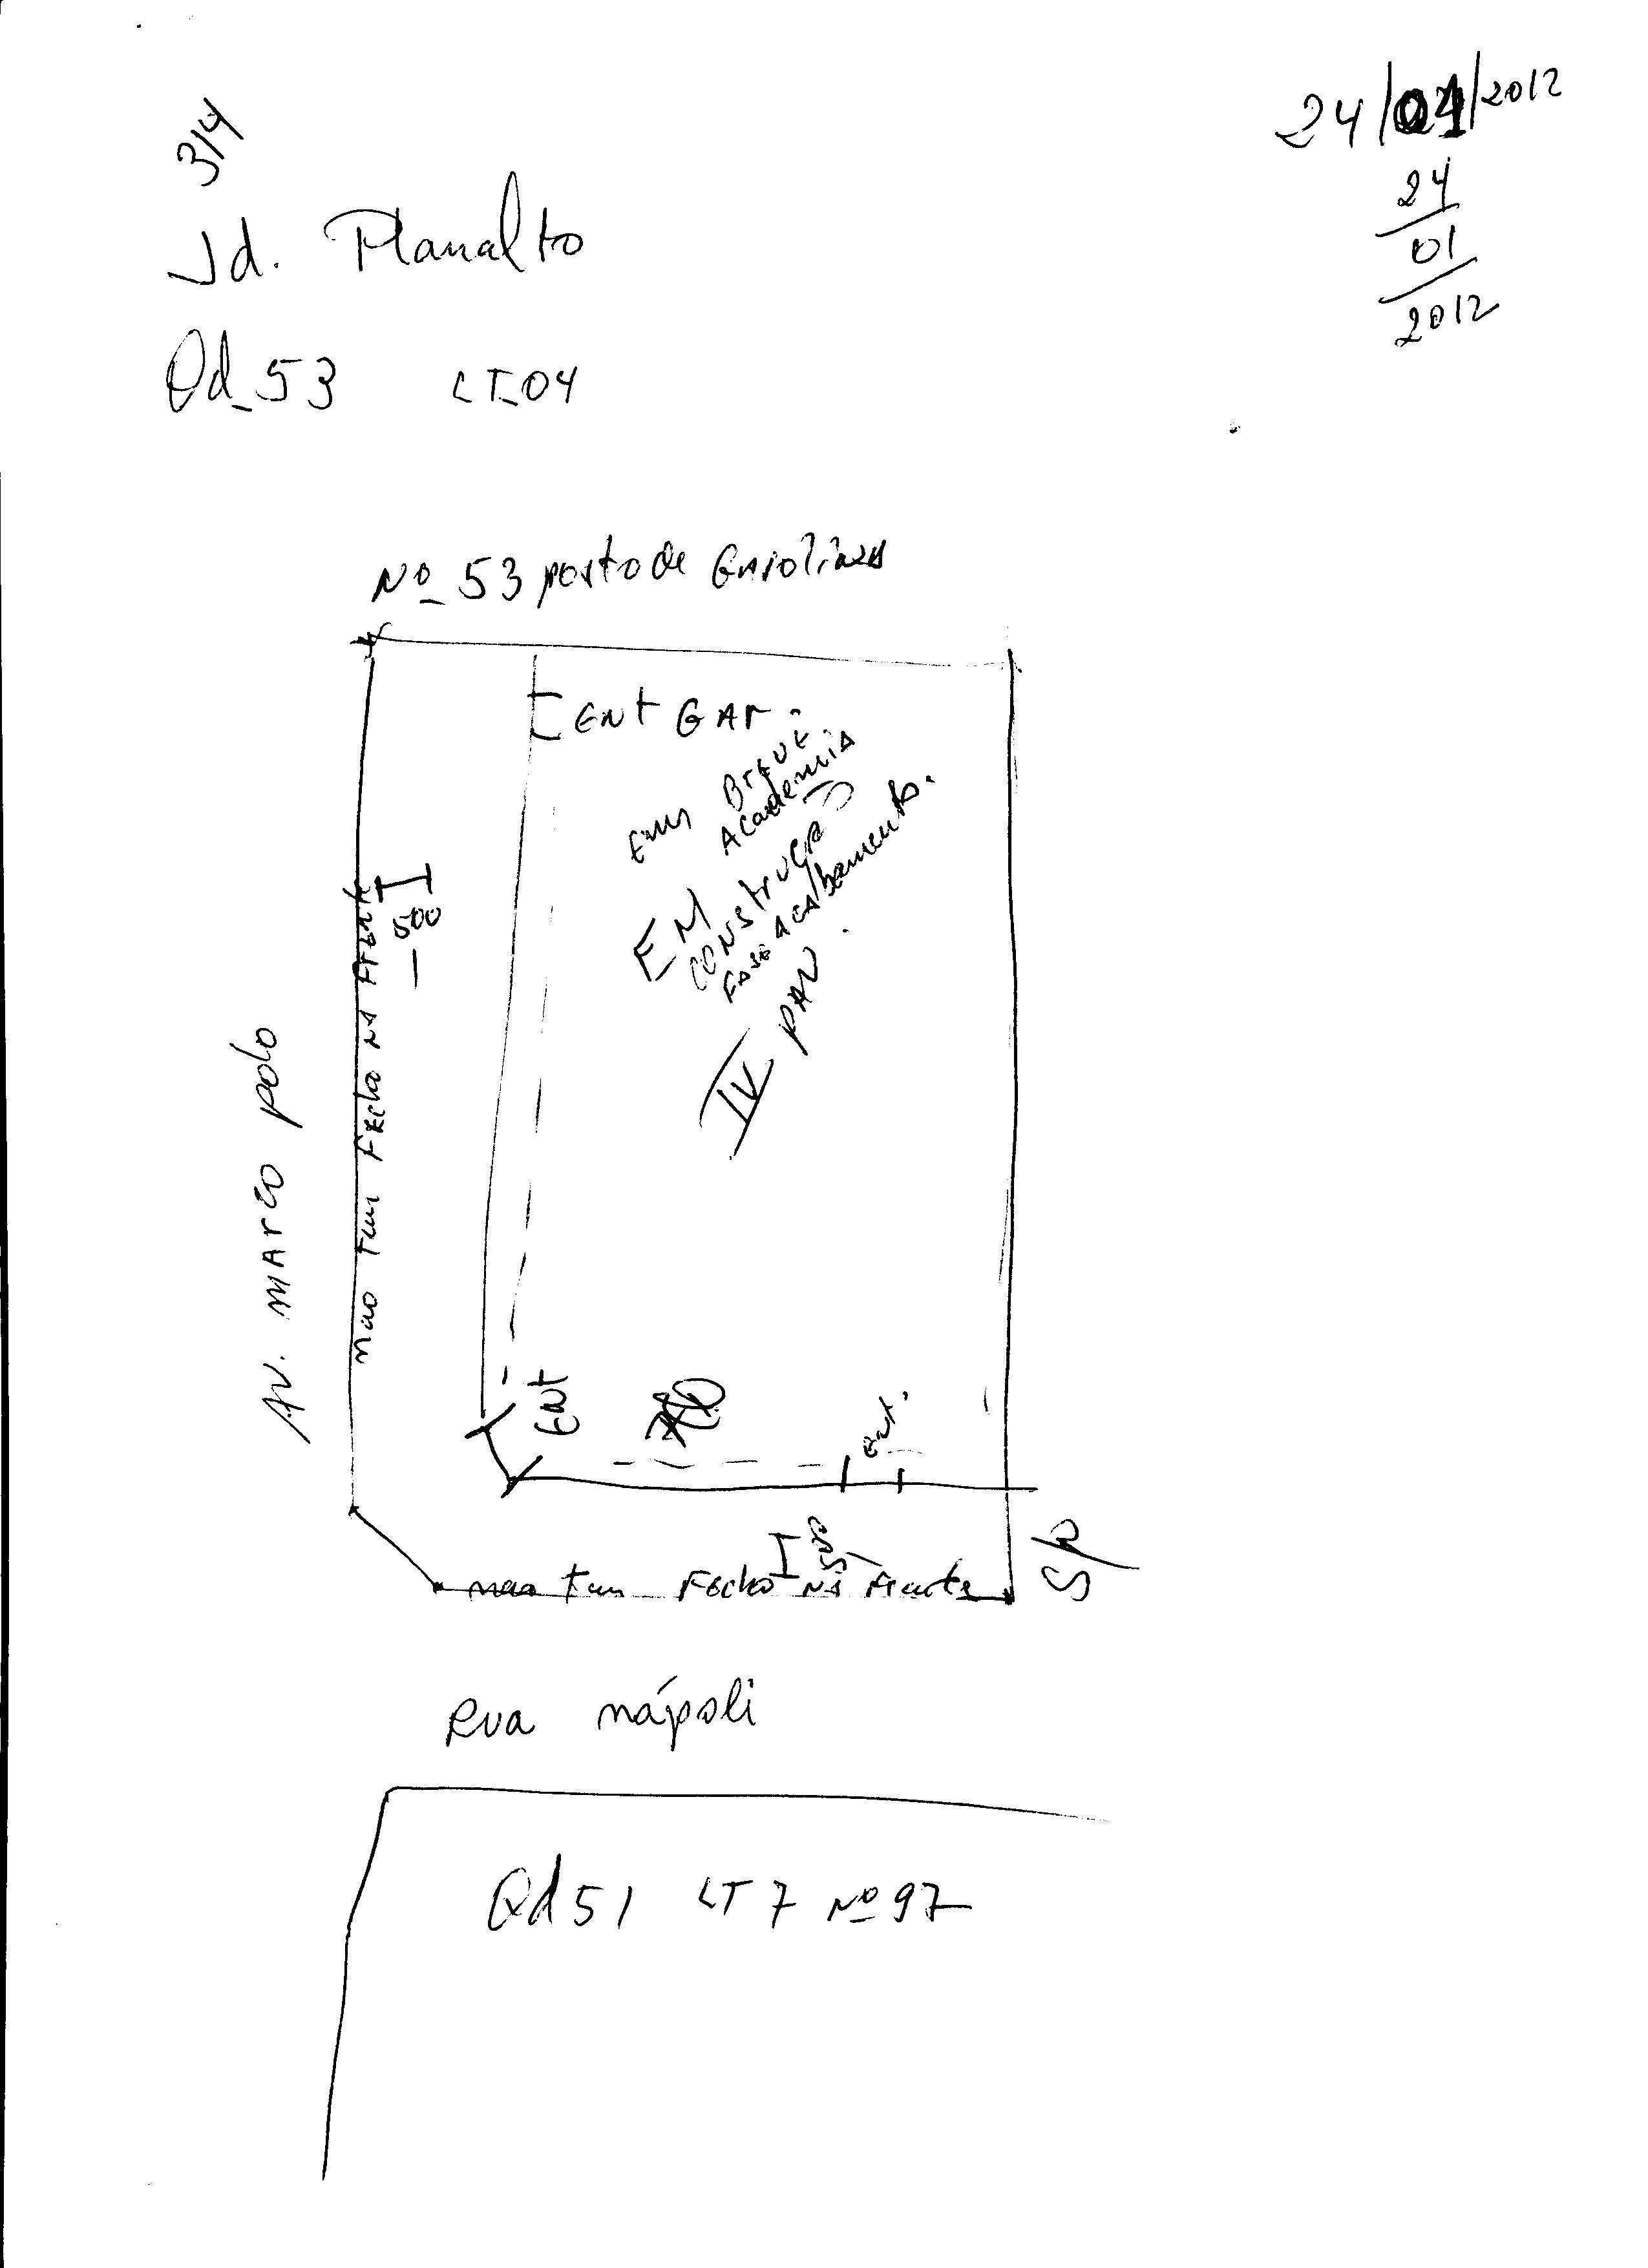 314
24/01/2012
24
01
2012
Jd. Planalto
Qd_53 LT_04
Nº 53 posto de Gasolina
Ent GAr.
Em Breve
Academia
EM
CONStruçÃo
Fase Acabamento.
IV PAV.
500
não tem Fecho na Frente
Av. MARCO polo
Ent
ent.
500
não tem Fecho na Frente
Rua nápoli
Qd 51 LT 7 Nº 97